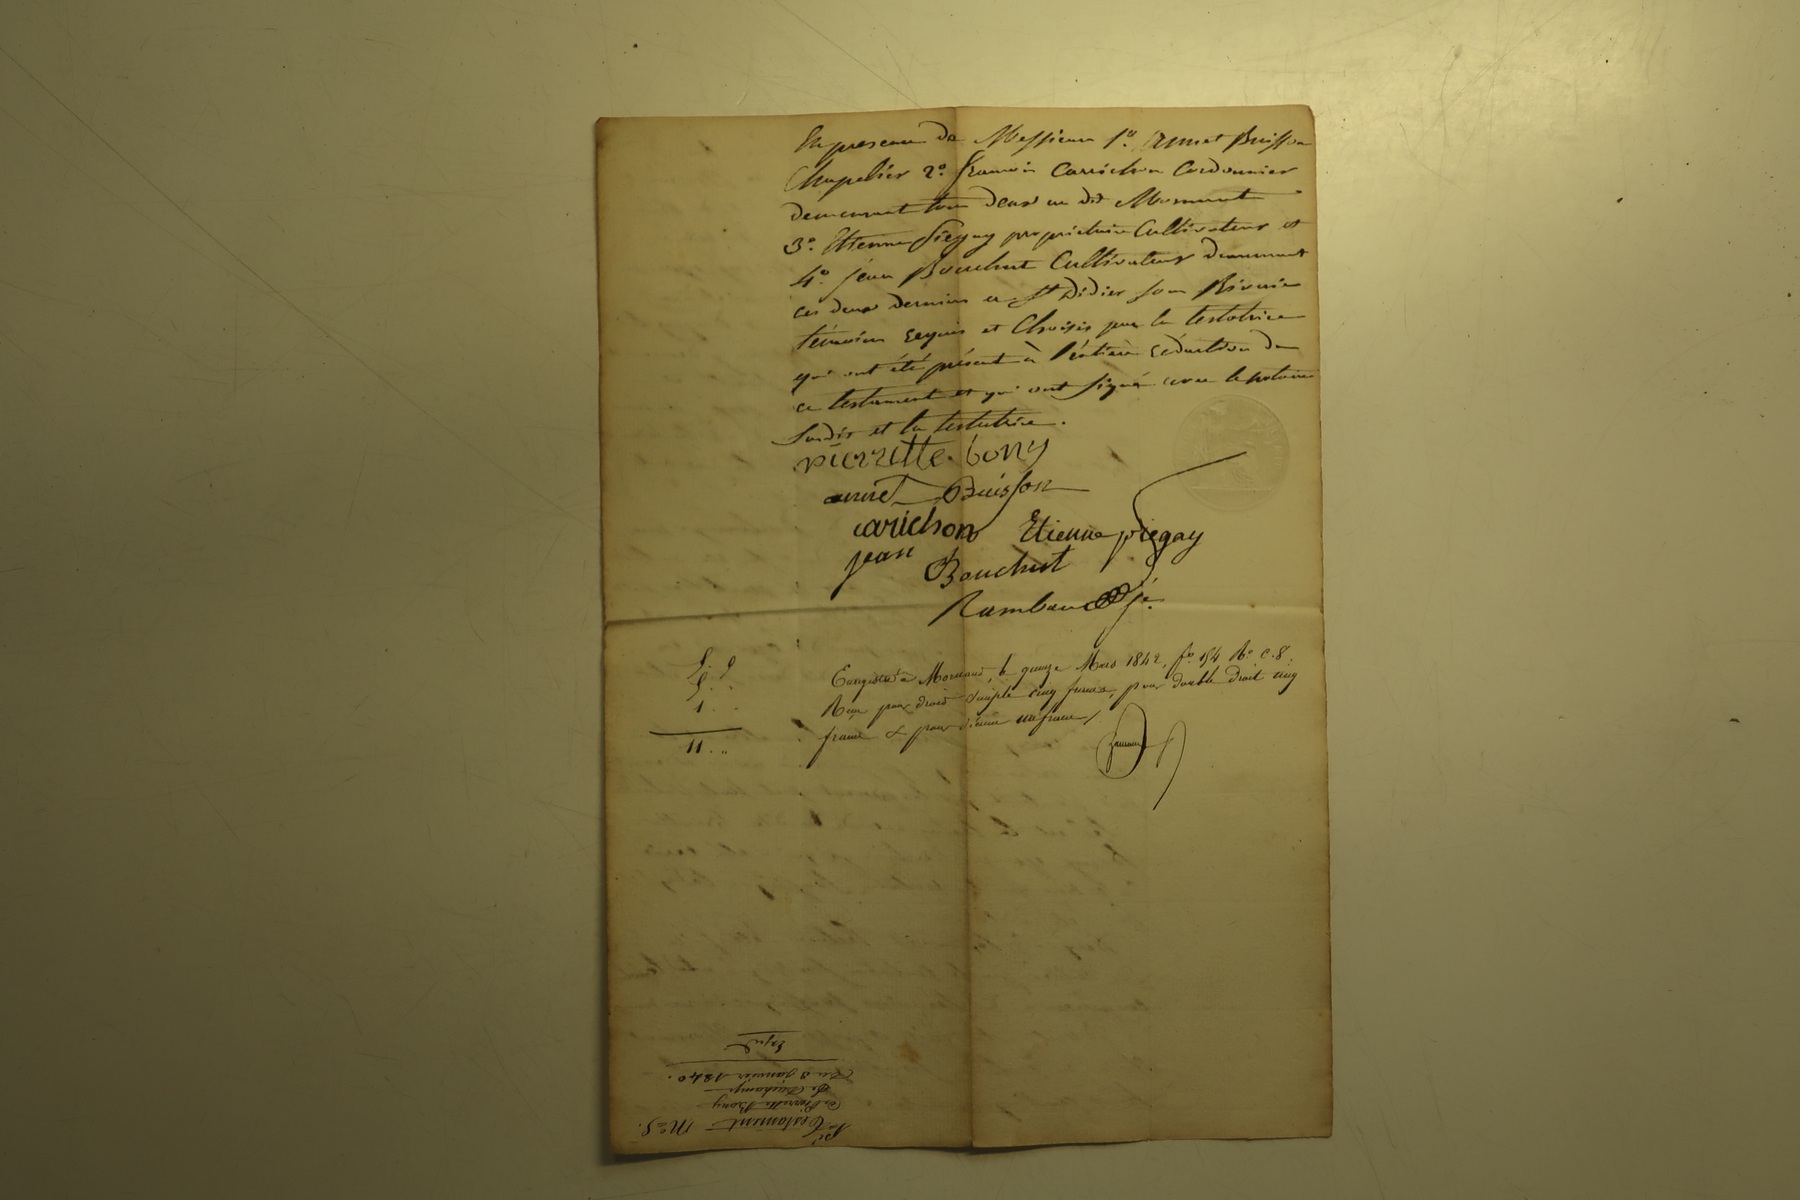 En presence de Messieurs 1º. Annet Buisson
Chapelier 2º. francois Carrichon Cordonnier
demeurant tous deux au dit Mornant
3º. Etienne Piegay propriétaire Cultivateur et
4º. jean Bouchut Cultivateur demeurant
ces deux derniers a St Didier sous Riverie
témoins requis et Choisis par la testatrice
qui ont été présent à l'entière rédaction de
ce testament et qui ont signé avec le notaire
susdit et la testatrice.
pierrette bony
annet Buisson
carichon Etienne piegay
jean Bouchut
Rambaud
5.
5.
1.
11.
Enregistré à Mornant, le quinze Mars 1842, fo 154 Ro. c. 8.
Reçu pour droit simple cinq francs, pour double droit cinq
francs & pour dixieme un franc
Testament Nº 5.
de Pierrette Bony
Du 3 Janvier 1840.
Expé